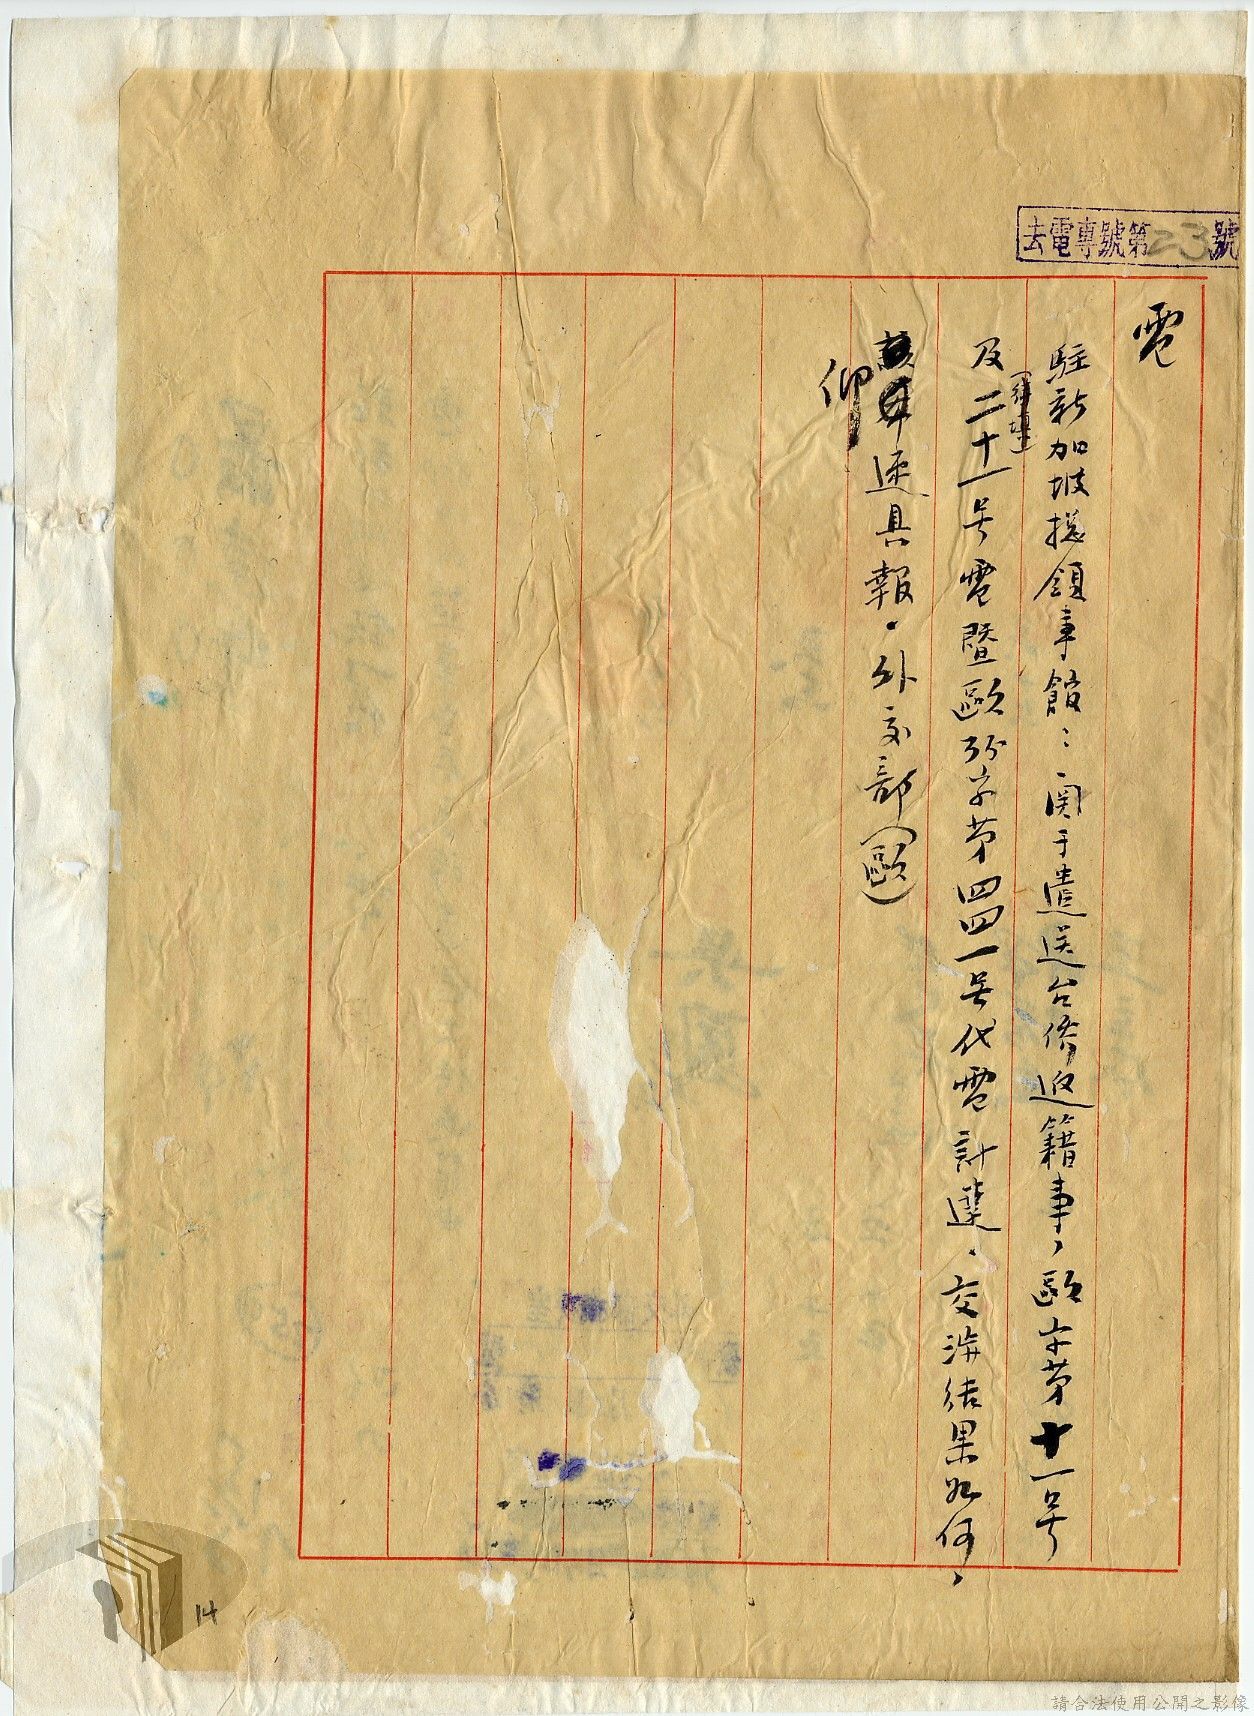 去電專號第23號
電
駐新加坡總領事館：關于遣送台僑返籍事，歐字第十一号
及二十一号電暨歐35字第四四一号代電計達。交涉結果如何，
仰速具報。外交部（歐）
14
請合法使用公開之影像